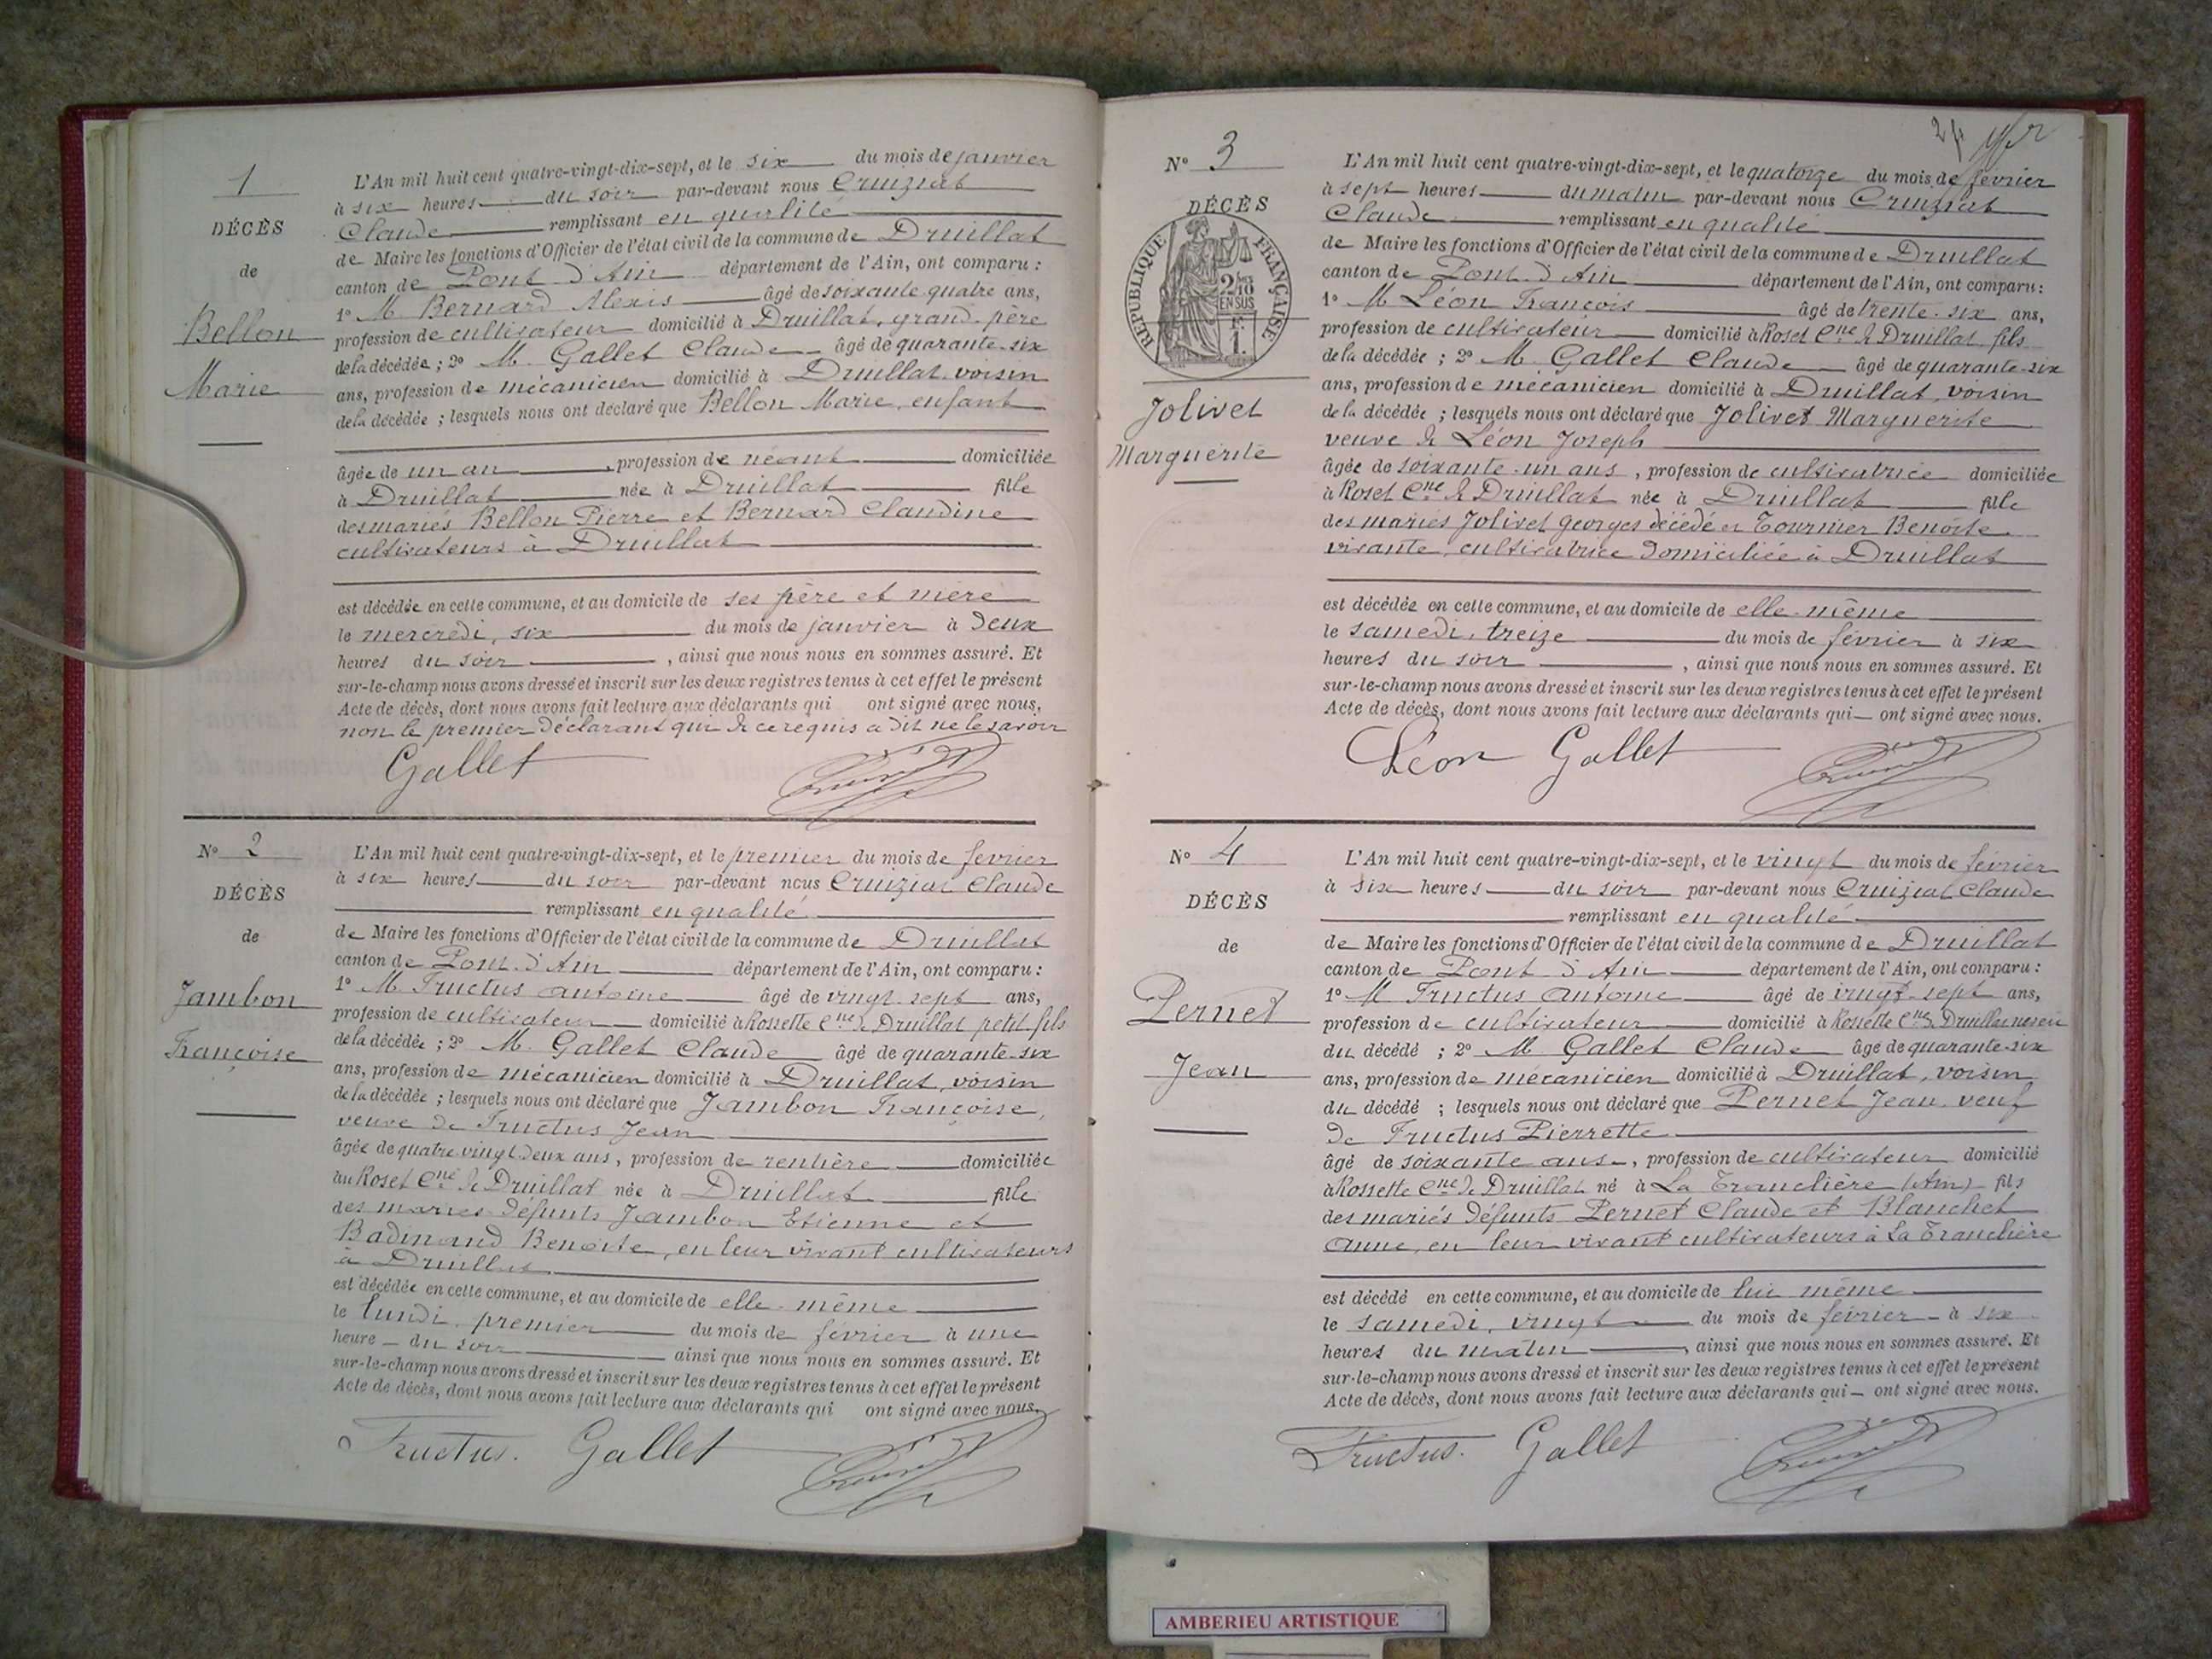 1
DÉCÈS
de
Bellon
Marie
L'An mil huit cent quatre-vingt-dix-sept, et le six du mois de janvier
à six heures du soir par-devant nous Cruiziat
Claude remplissant en qualité
de Maire les fonctions d'Officier de l'état civil de la commune de Druillat
canton de Pont d'Ain département de l'Ain, ont comparu :
1° M Bernard Alexis âgé de soixante quatre ans,
profession de cultivateur domicilié à Druillat, grand-père
de la décédée ; 2° M. Gallet Claude âgé de quarante-six
ans, profession de mécanicien domicilié à Druillat, voisin
de la décédée ; lesquels nous ont déclaré que Bellon Marie, enfant
âgée de un an, profession de néant domiciliée
à Druillat née à Druillat fille
des mariés Bellon Pierre et Bernard Claudine
cultivateurs à Druillat
est décédée en cette commune, et au domicile de ses père et mère
le mercredi, six du mois de janvier à deux
heures du soir, ainsi que nous nous en sommes assuré. Et
sur-le-champ nous avons dressé et inscrit sur les deux registres tenus à cet effet le présent
Acte de décès, dont nous avons fait lecture aux déclarants qui ont signé avec nous,
non le premier déclarant qui de ce requis a dit ne le savoir
Gallet
N° 2
DÉCÈS
de
Jambon
Françoise
L'An mil huit cent quatre-vingt-dix-sept, et le premier du mois de février
à six heures du soir par-devant nous Cruiziat Claude
remplissant en qualité
de Maire les fonctions d'Officier de l'état civil de la commune de Druillat
canton de Pont d'Ain département de l'Ain, ont comparu :
1° M Fructus Antoine âgé de vingt-sept ans,
profession de cultivateur domicilié à Rossette Cne de Druillat petit fils
de la décédée ; 2° M. Gallet Claude âgé de quarante-six
ans, profession de mécanicien domicilié à Druillat, voisin
de la décédée ; lesquels nous ont déclaré que Jambon Françoise,
veuve de Fructus Jean
âgée de quatre vingt deux ans, profession de rentière domiciliée
au Roset Cne de Druillat née à Druillat fille
des mariés défunts Jambon Etienne et
Badinand Benoite, en leur vivant cultivateurs
à Druillat
est décédée en cette commune, et au domicile de elle-même
le lundi, premier du mois de février à une
heure du soir ainsi que nous nous en sommes assuré. Et
sur-le-champ nous avons dressé et inscrit sur les deux registres tenus à cet effet le présent
Acte de décès, dont nous avons fait lecture aux déclarants qui ont signé avec nous.
Fructus. Gallet
N° 3
DÉCÈS
RÉPUBLIQUE FRANÇAISE
2/10
EN SUS
1
Jolivet
Marguerite
24
L'An mil huit cent quatre-vingt-dix-sept, et le quatorze du mois de février
à sept heures du matin par-devant nous Cruiziat
Claude remplissant en qualité
de Maire les fonctions d'Officier de l'état civil de la commune de Druillat
canton de Pont d'Ain département de l'Ain, ont comparu :
1° M Léon François âgé de trente-six ans,
profession de cultivateur domicilié à Roset Cne de Druillat fils
de la décédée ; 2° M. Gallet Claude âgé de quarante-six
ans, profession de mécanicien domicilié à Druillat, voisin
de la décédée ; lesquels nous ont déclaré que Jolivet Marguerite
veuve de Léon Joseph
âgée de soixante-un ans, profession de cultivatrice domiciliée
à Roset Cne de Druillat née à Druillat fille
des mariés Jolivet Georges décédé et Tournier Benoite
vivante, cultivatrice domiciliée à Druillat
est décédée en cette commune, et au domicile de elle-même
le samedi, treize du mois de février à six
heures du soir, ainsi que nous nous en sommes assuré. Et
sur-le-champ nous avons dressé et inscrit sur les deux registres tenus à cet effet le présent
Acte de décès, dont nous avons fait lecture aux déclarants qui ont signé avec nous.
Léon Gallet
N° 4
DÉCÈS
de
Pernet
Jean
L'An mil huit cent quatre-vingt-dix-sept, et le vingt du mois de février
à six heures du soir par-devant nous Cruiziat Claude
remplissant en qualité
de Maire les fonctions d'Officier de l'état civil de la commune de Druillat
canton de Pont d'Ain département de l'Ain, ont comparu :
1° M Fructus Antoine âgé de vingt-sept ans,
profession de cultivateur domicilié à Rossette Cne de Druillat neveu
du décédé ; 2° M Gallet Claude âgé de quarante-six
ans, profession de mécanicien domicilié à Druillat, voisin
du décédé ; lesquels nous ont déclaré que Pernet Jean, veuf
de Fructus Pierrette
âgé de soixante ans, profession de cultivateur domicilié
à Rossette Cne de Druillat né à La Tranclière (Ain) fils
des mariés défunts Pernet Claude et Blanchet
Anne, en leur vivant cultivateurs à La Tranclière
est décédé en cette commune, et au domicile de lui même
le samedi, vingt du mois de février à six
heures du matin, ainsi que nous nous en sommes assuré. Et
sur-le-champ nous avons dressé et inscrit sur les deux registres tenus à cet effet le présent
Acte de décès, dont nous avons fait lecture aux déclarants qui ont signé avec nous.
Fructus. Gallet
AMBERIEU ARTISTIQUE